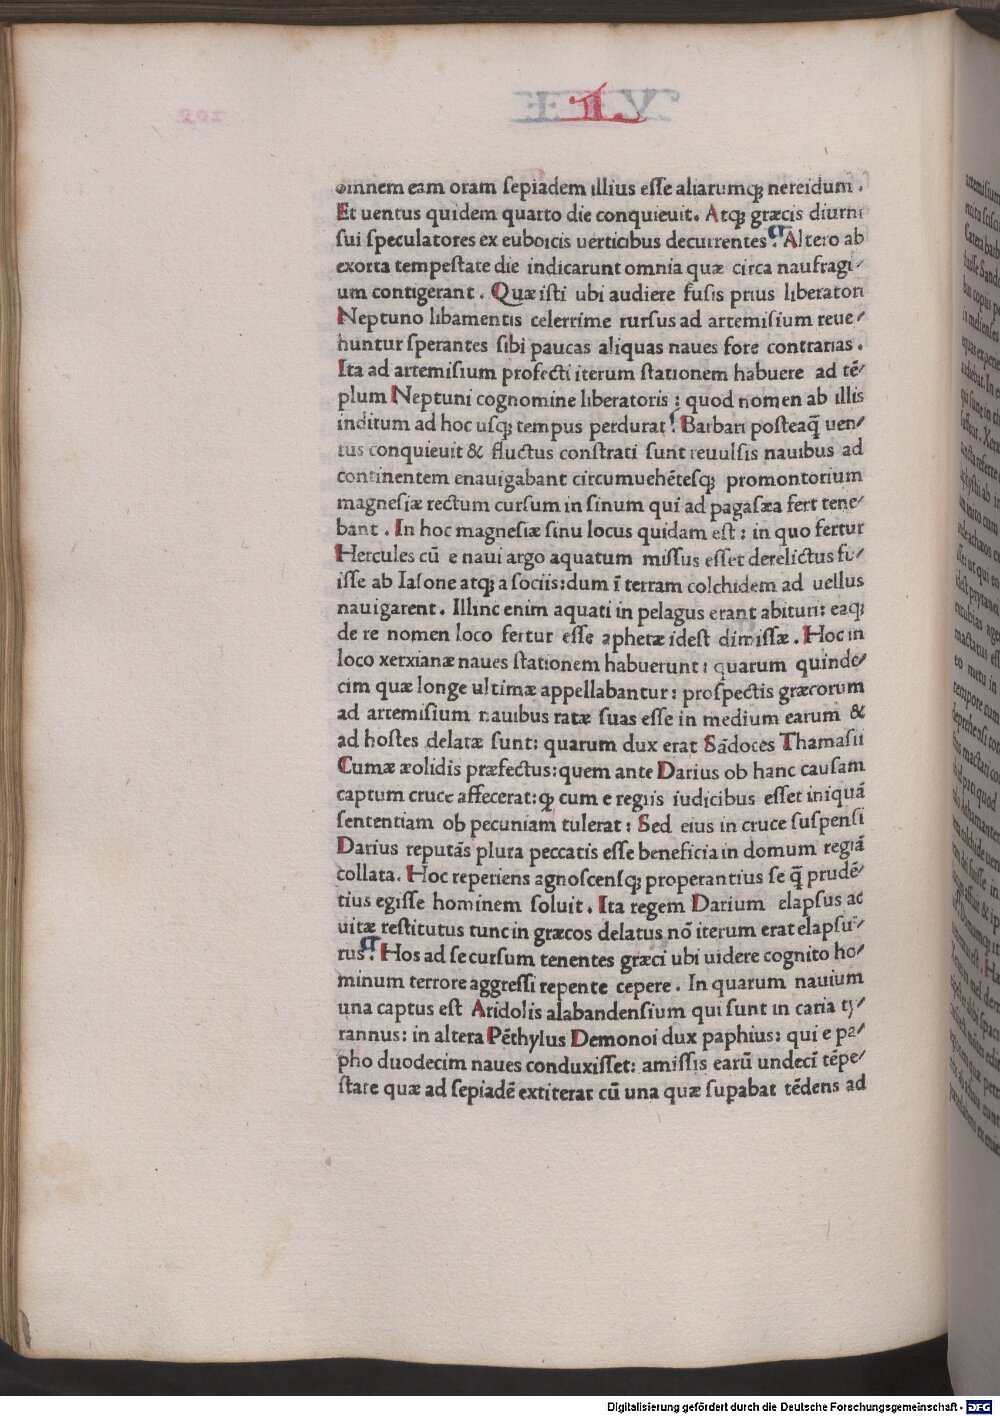 L
omnem eam oram sepiadem illius esse aliarumq; nereidum .
Et uentus quidem quarto die conquieuit. Atq; græcis diurni
sui speculatores ex euboicis uerticibus decurrentes . Altero ab
exorta tempestate die indicarunt omnia quæ circa naufragi⸗
um contigerant . Quæ isti ubi audiere fusis prius liberatori
Neptuno libamentis celerrime rursus ad artemisium reue⸗
huntur sperantes sibi paucas aliquas naues fore contrarias .
Ita ad artemisium profecti iterum stationem habuere ad tē⸗
plum Neptuni cognomine liberatoris : quod nomen ab illis
inditum ad hoc usq; tempus perdurat . Barbari posteaq̃ uen⸗
tus conquieuit & fluctus constrati sunt reuulsis nauibus ad
continentem enauigabant circumuehētesq; promontorium
magnesiæ rectum cursum in sinum qui ad pagasæa fert tene⸗
bant . In hoc magnesiæ sinu locus quidam est : in quo fertur
Hercules cū e naui argo aquatum missus esset derelictus fu⸗
isse ab Iasone atq; a sociis:dum ī terram colchidem ad uellus
nauigarent . Illinc enim aquati in pelagus erant abituri: eaq;
de re nomen loco fertur esse aphetæ idest dimissæ . Hoc in
loco xerxianæ naues stationem habuerunt : quarum quinde⸗
cim quæ longe ultimæ appellabantur : prospectis græcorum
ad artemisium nauibus ratæ suas esse in medium earum &
ad hostes delatæ sunt: quarum dux erat Sādoces Thamasii
Cumæ æolidis præfectus:quem ante Darius ob hanc causam
captum cruce affecerat:q; cum e regiis iudicibus esset iniquā
sententiam ob pecuniam tulerat : Sed eius in cruce suspensi
Darius reputās plura peccatis esse beneficia in domum regiā
collata. Hoc reperiens agnoscensq; properantius se q̃ prudē⸗
tius egisse hominem soluit . Ita regem Darium elapsus ac
uitæ restitutus tunc in græcos delatus nō iterum erat elapsu⸗
rus . Hos ad se cursum tenentes græci ubi uidere cognito ho⸗
minum terrore aggressi repente cepere . In quarum nauium
una captus est Aridolis alabandensium qui sunt in caria ty⸗
rannus: in altera Pēthylus Demonoi dux paphius: qui e pa⸗
pho duodecim naues conduxisset: amissis earū undecī tēpe⸗
state quæ ad sepiadē extiterat cū una quæ supabat tēdens ad
Digitalisierung gefördert durch die Deutsche Forschungsgemeinschaft - DFG